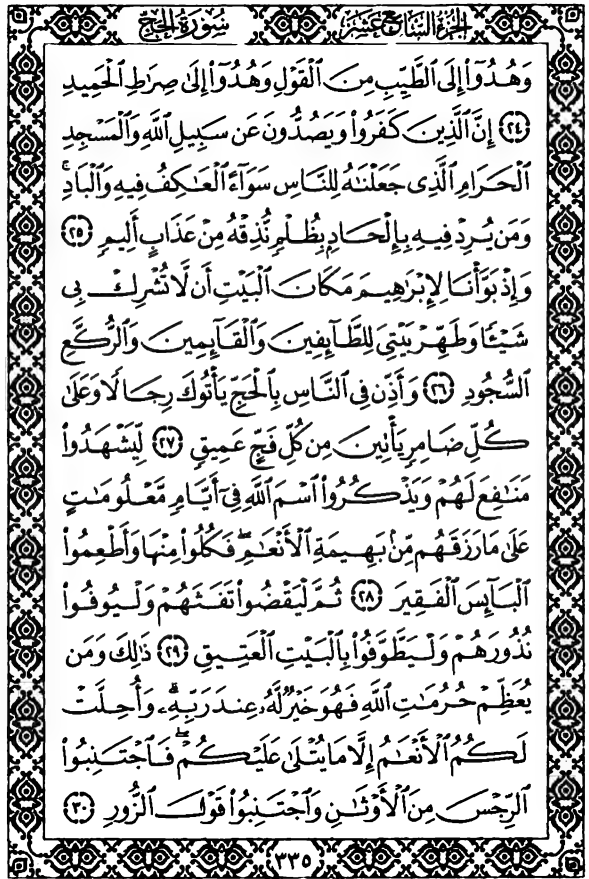 سُورَةُ الحَجِّ الجُزْءُ السَّابِعَ عَشَرَ
وَهُدُوٓا۟ إِلَى ٱلطَّيِّبِ مِنَ ٱلْقَوْلِ وَهُدُوٓا۟ إِلَىٰ صِرَٰطِ ٱلْحَمِيدِ
﴿٢٤﴾ إِنَّ ٱلَّذِينَ كَفَرُوا۟ وَيَصُدُّونَ عَن سَبِيلِ ٱللَّهِ وَٱلْمَسْجِدِ
ٱلْحَرَامِ ٱلَّذِى جَعَلْنَٰهُ لِلنَّاسِ سَوَآءً ٱلْعَٰكِفُ فِيهِ وَٱلْبَادِ ۚ
وَمَن يُرِدْ فِيهِ بِإِلْحَادٍۭ بِظُلْمٍ نُّذِقْهُ مِنْ عَذَابٍ أَلِيمٍ ﴿٢٥﴾
وَإِذْ بَوَّأْنَا لِإِبْرَٰهِيمَ مَكَانَ ٱلْبَيْتِ أَن لَّا تُشْرِكْ بِى
شَيْـًٔا وَطَهِّرْ بَيْتِىَ لِلطَّآئِفِينَ وَٱلْقَآئِمِينَ وَٱلرُّكَّعِ
ٱلسُّجُودِ ﴿٢٦﴾ وَأَذِّن فِى ٱلنَّاسِ بِٱلْحَجِّ يَأْتُوكَ رِجَالًا وَعَلَىٰ
كُلِّ ضَامِرٍ يَأْتِينَ مِن كُلِّ فَجٍّ عَمِيقٍ ﴿٢٧﴾ لِّيَشْهَدُوا۟
مَنَٰفِعَ لَهُمْ وَيَذْكُرُوا۟ ٱسْمَ ٱللَّهِ فِىٓ أَيَّامٍ مَّعْلُومَٰتٍ
عَلَىٰ مَا رَزَقَهُم مِّنۢ بَهِيمَةِ ٱلْأَنْعَٰمِ ۖ فَكُلُوا۟ مِنْهَا وَأَطْعِمُوا۟
ٱلْبَآئِسَ ٱلْفَقِيرَ ﴿٢٨﴾ ثُمَّ لْيَقْضُوا۟ تَفَثَهُمْ وَلْيُوفُوا۟
نُذُورَهُمْ وَلْيَطَّوَّفُوا۟ بِٱلْبَيْتِ ٱلْعَتِيقِ ﴿٢٩﴾ ذَٰلِكَ وَمَن
يُعَظِّمْ حُرُمَٰتِ ٱللَّهِ فَهُوَ خَيْرٌ لَّهُۥ عِندَ رَبِّهِۦ ۗ وَأُحِلَّتْ
لَكُمُ ٱلْأَنْعَٰمُ إِلَّا مَا يُتْلَىٰ عَلَيْكُمْ ۖ فَٱجْتَنِبُوا۟
ٱلرِّجْسَ مِنَ ٱلْأَوْثَٰنِ وَٱجْتَنِبُوا۟ قَوْلَ ٱلزُّورِ ﴿٣٠﴾
٣٣٥